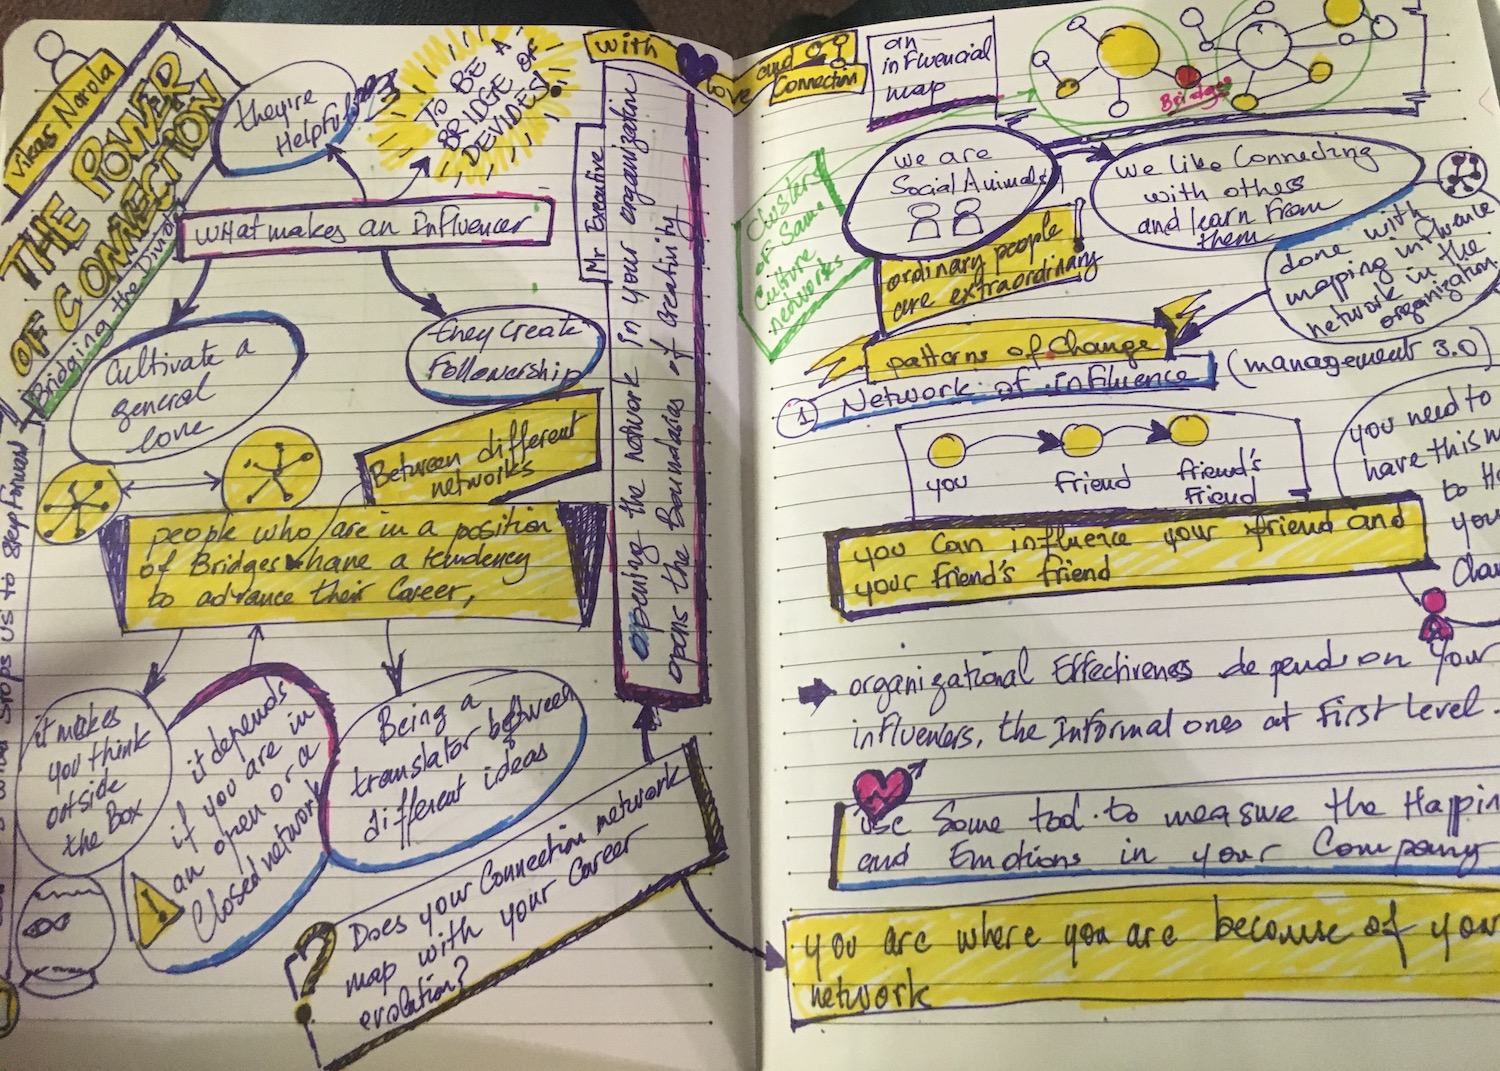 Vikas Narola
THE POWER
OF CONNECTION
Bridging the Divide
they're
Helpful
TO BE A
BRIDGE OF
DEVIDES!
WHat makes an Influencer
Cultivate a
general
love
they create
Followership
Between different
networks
people who are in a position
of Bridges have a tendency
to advance their Career,
it makes
you think
outside
the Box
it depends
if you are in
an open or a
Closed network
!
Being a
translator between
different ideas
?
Does your Connection network
map with your Career
evolation?
Stops us to step forward
with
love
and
Connection
Mr Executive
opening the network in your organization
opens the Boundaries of creativity
an
influencial
map
Bridge
Clusters
of Same
Culture
networks
we are
Social Animals
we like Connecting
with others
and learn from
them
ordinary people
are extraordinary
!
done with
mapping influence
network in the
organization
patterns of Change
1 Network of influence (management 3.0)
you
friend
friend's
friend
you need to
have this
to
you
you can influence your friend and
your friend's friend
organizational Effectiveness depends on your
influencers, the Informal ones at First level.
use Some tool to measure the
and Emotions in your Company
you are where you are because of
network